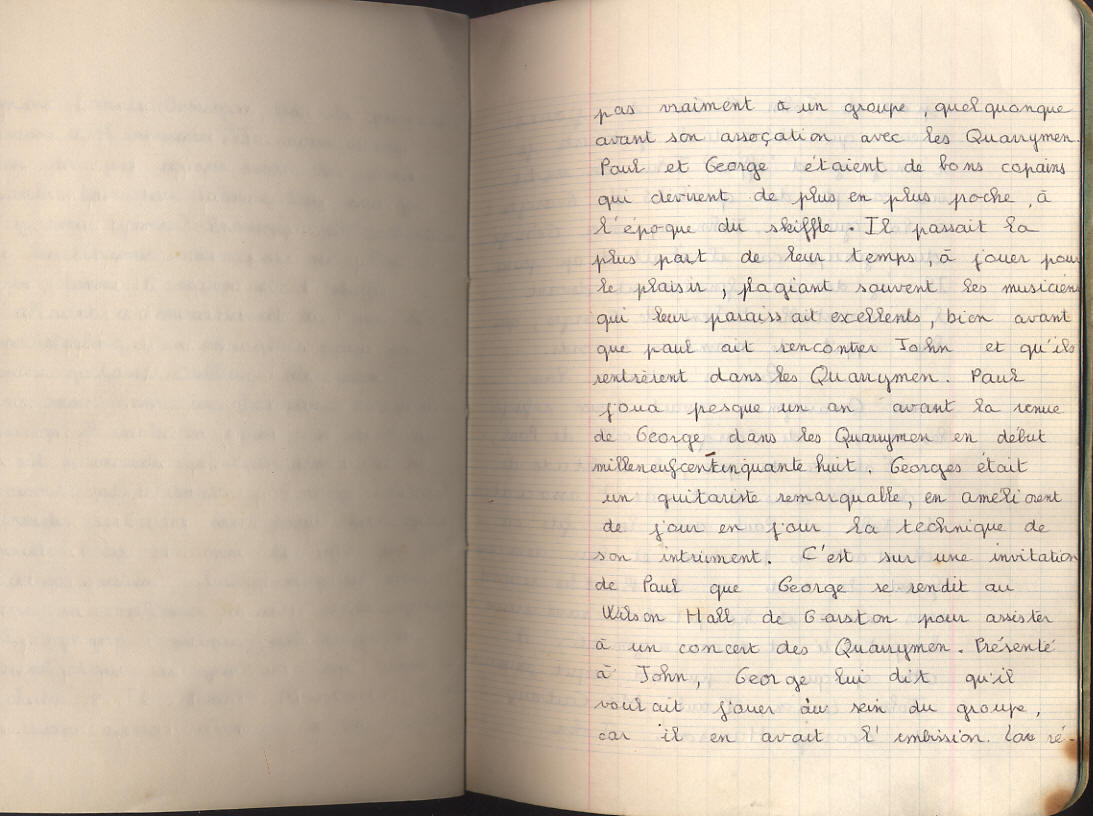 pas vraiment à un groupe, quelquonque
avant son assoçation avec les Quarrymen.
Paul et George étaient de bons copains
qui devirent de plus en plus poche, à
l'époque du skiffle. Il passait la
plus part de leur temps, à jouer pour
le plaisir, plagiant souvent les musiciens
qui leur paraissait excellents, bien avant
que paul ait rencontrer John et qu'ils
rentrèrent dans les Quarrymen. Paul
joua pesque un an avant la venue
de George dans les Quarrymen en début
milleneufcentcinquante huit. Georges était
un guitariste remarquable, en améliorent
de jour en jour la technique de
son intrument. C'est sur une invitation
de Paul que George se rendit au
Wilson Hall de Garston pour assister
à un concert des Quarrymen. Présenté
à John, George lui dit qu'il
voulait jouer au sein du groupe,
car il en avait l'embission. ré-